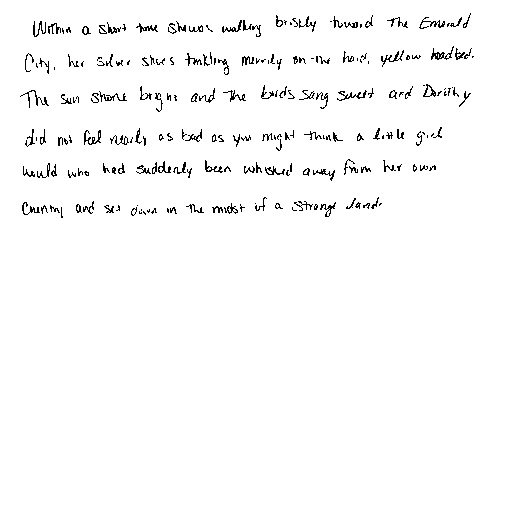 Within a short time she was walking briskly toward The Emerald
City, her silver shoes tinkling merrily on the hard, yellow roadbed.
The sun shone bright and the birds sang sweet and Dorothy
did not feel nearly as bad as you might think a little girl
would who had suddenly been whisked away from her own
Country and set down in the midst of a strange land.